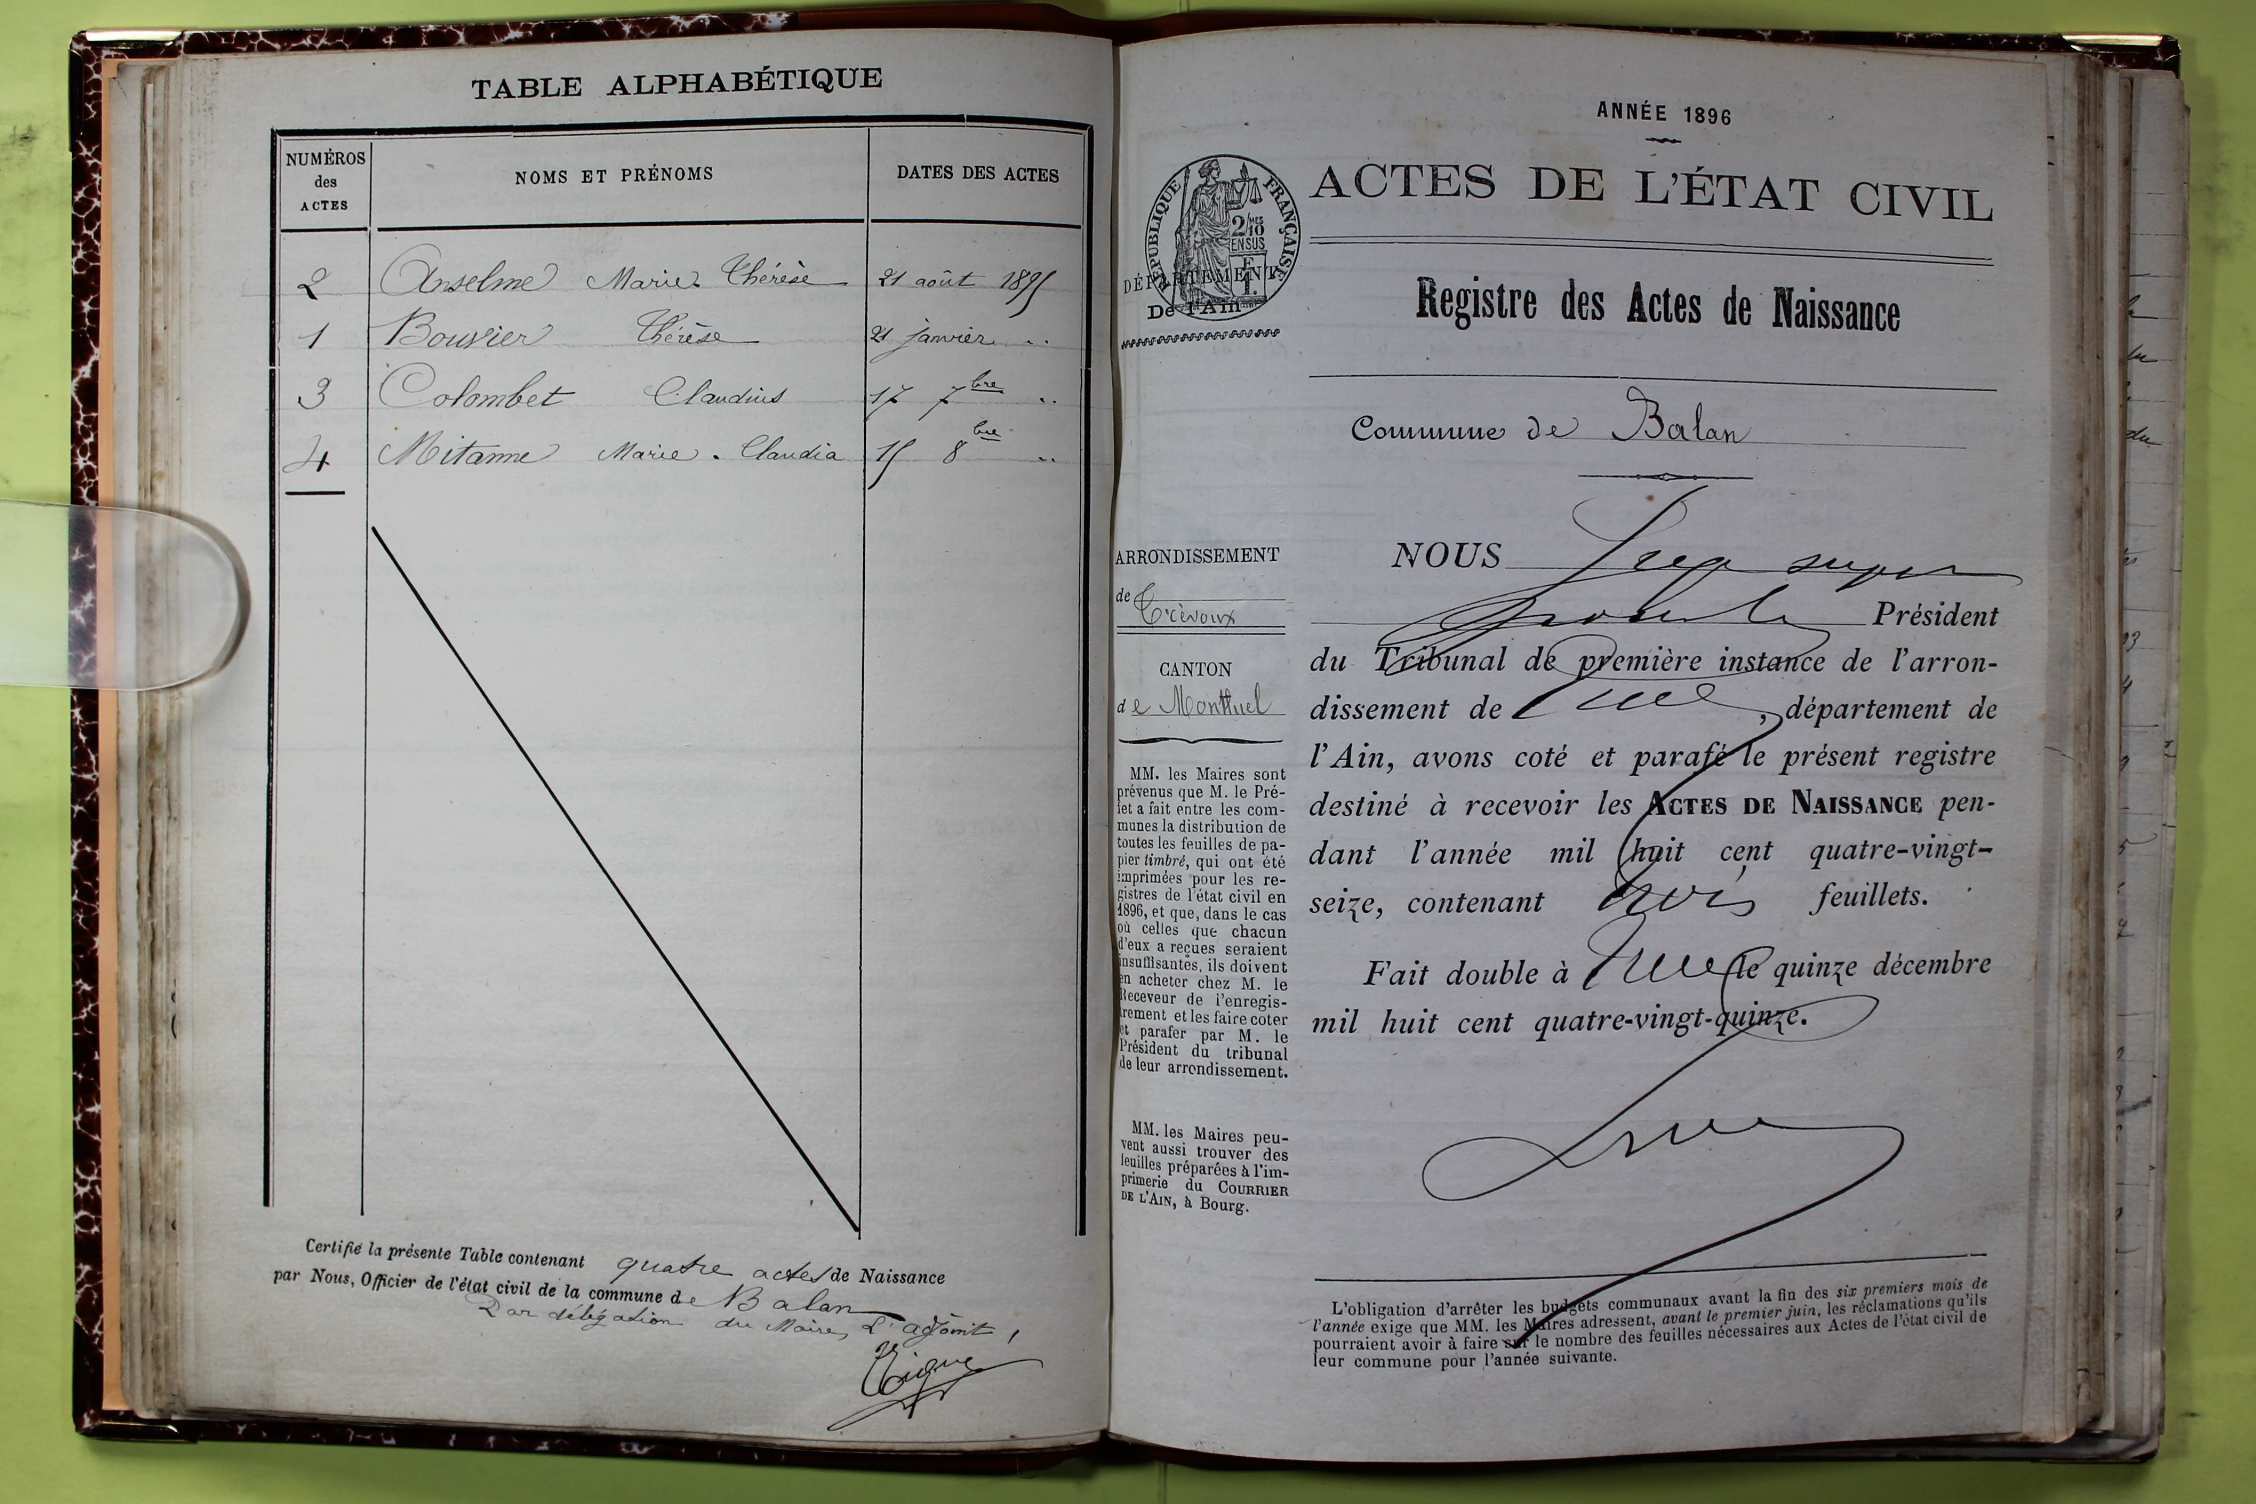 TABLE ALPHABÉTIQUE
NUMÉROS
des
ACTES
NOMS ET PRÉNOMS
DATES DES ACTES
2 Anselme Marie Thérèse 21 août 1895
1 Bouvier Thérèse 21 janvier ..
3 Colombet Claudius 17 7bre ..
4 Mitanne Marie. Claudia 15 8bre ..
Certifié la présente Table contenant quatre actes de Naissance
par Nous, Officier de l'état civil de la commune de Balan
Par délégation du Maire, L'adjoint,
ANNÉE 1896
ACTES DE L'ÉTAT CIVIL
RÉPUBLIQUE FRANÇAISE
2/10 MES
EN SUS
DÉPARTEMENT
De l'Ain
Registre des Actes de Naissance
Commune de Balan
ARRONDISSEMENT
de
Trévoux
CANTON
de Montluel
MM. les Maires sont
prévenus que M. le Pré-
fet a fait entre les com-
munes la distribution de
toutes les feuilles de pa-
pier timbré, qui ont été
imprimées pour les re-
gistres de l'état civil en
1896, et que, dans le cas
où celles que chacun
d'eux a reçues seraient
insuffisantes, ils doivent
en acheter chez M. le
Receveur de l'enregis-
trement et les faire coter
et parafer par M. le
Président du tribunal
de leur arrondissement.
MM. les Maires peu-
vent aussi trouver des
feuilles préparées à l'im-
primerie du COURRIER
DE L'AIN, à Bourg.
NOUS
Président
du Tribunal de première instance de l'arron-
dissement de , département de
l'Ain, avons coté et parafé le présent registre
destiné à recevoir les ACTES DE NAISSANCE pen-
dant l'année mil huit cent quatre-vingt-
seize, contenant trois feuillets.
Fait double à le quinze décembre
mil huit cent quatre-vingt-quinze.
L'obligation d'arrêter les budgets communaux avant la fin des six premiers mois de
l'année exige que MM. les Maires adressent, avant le premier juin, les réclamations qu'ils
pourraient avoir à faire sur le nombre des feuilles nécessaires aux Actes de l'état civil de
leur commune pour l'année suivante.